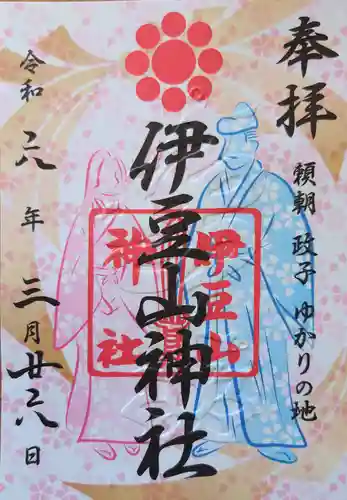 奉拝
頼朝 政子 ゆかりの地
伊豆山神社
伊豆山
神社
令和 六年 三月 廿六日